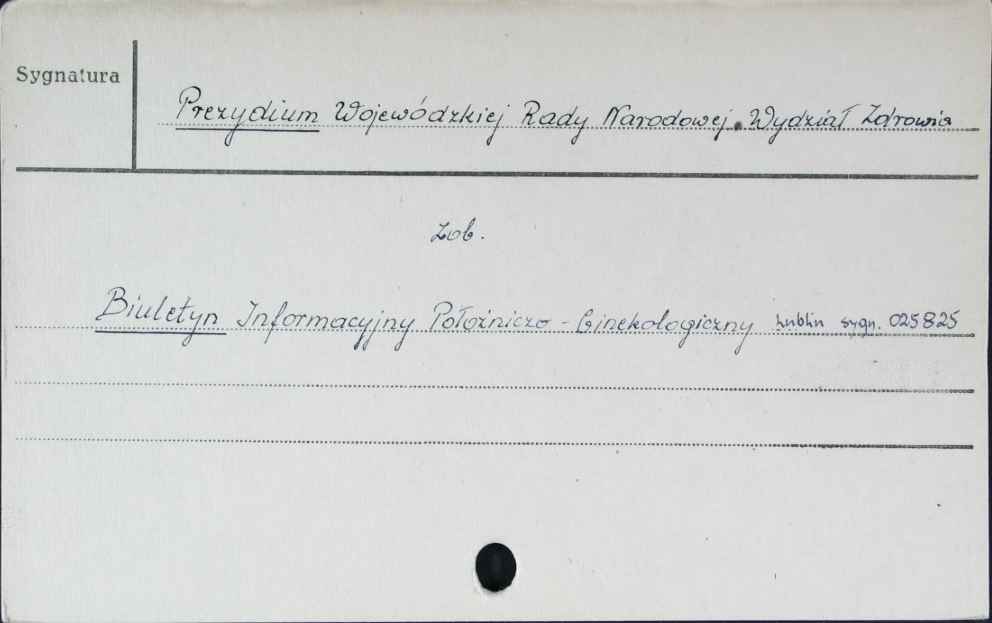 Sygnatura
Prezydium Wojewódzkiej Rady Narodowej. Wydział Zdrowia
Zob.
Biuletyn Informacyjny Położniczo - Ginekologiczny Lublin sygn. 025825